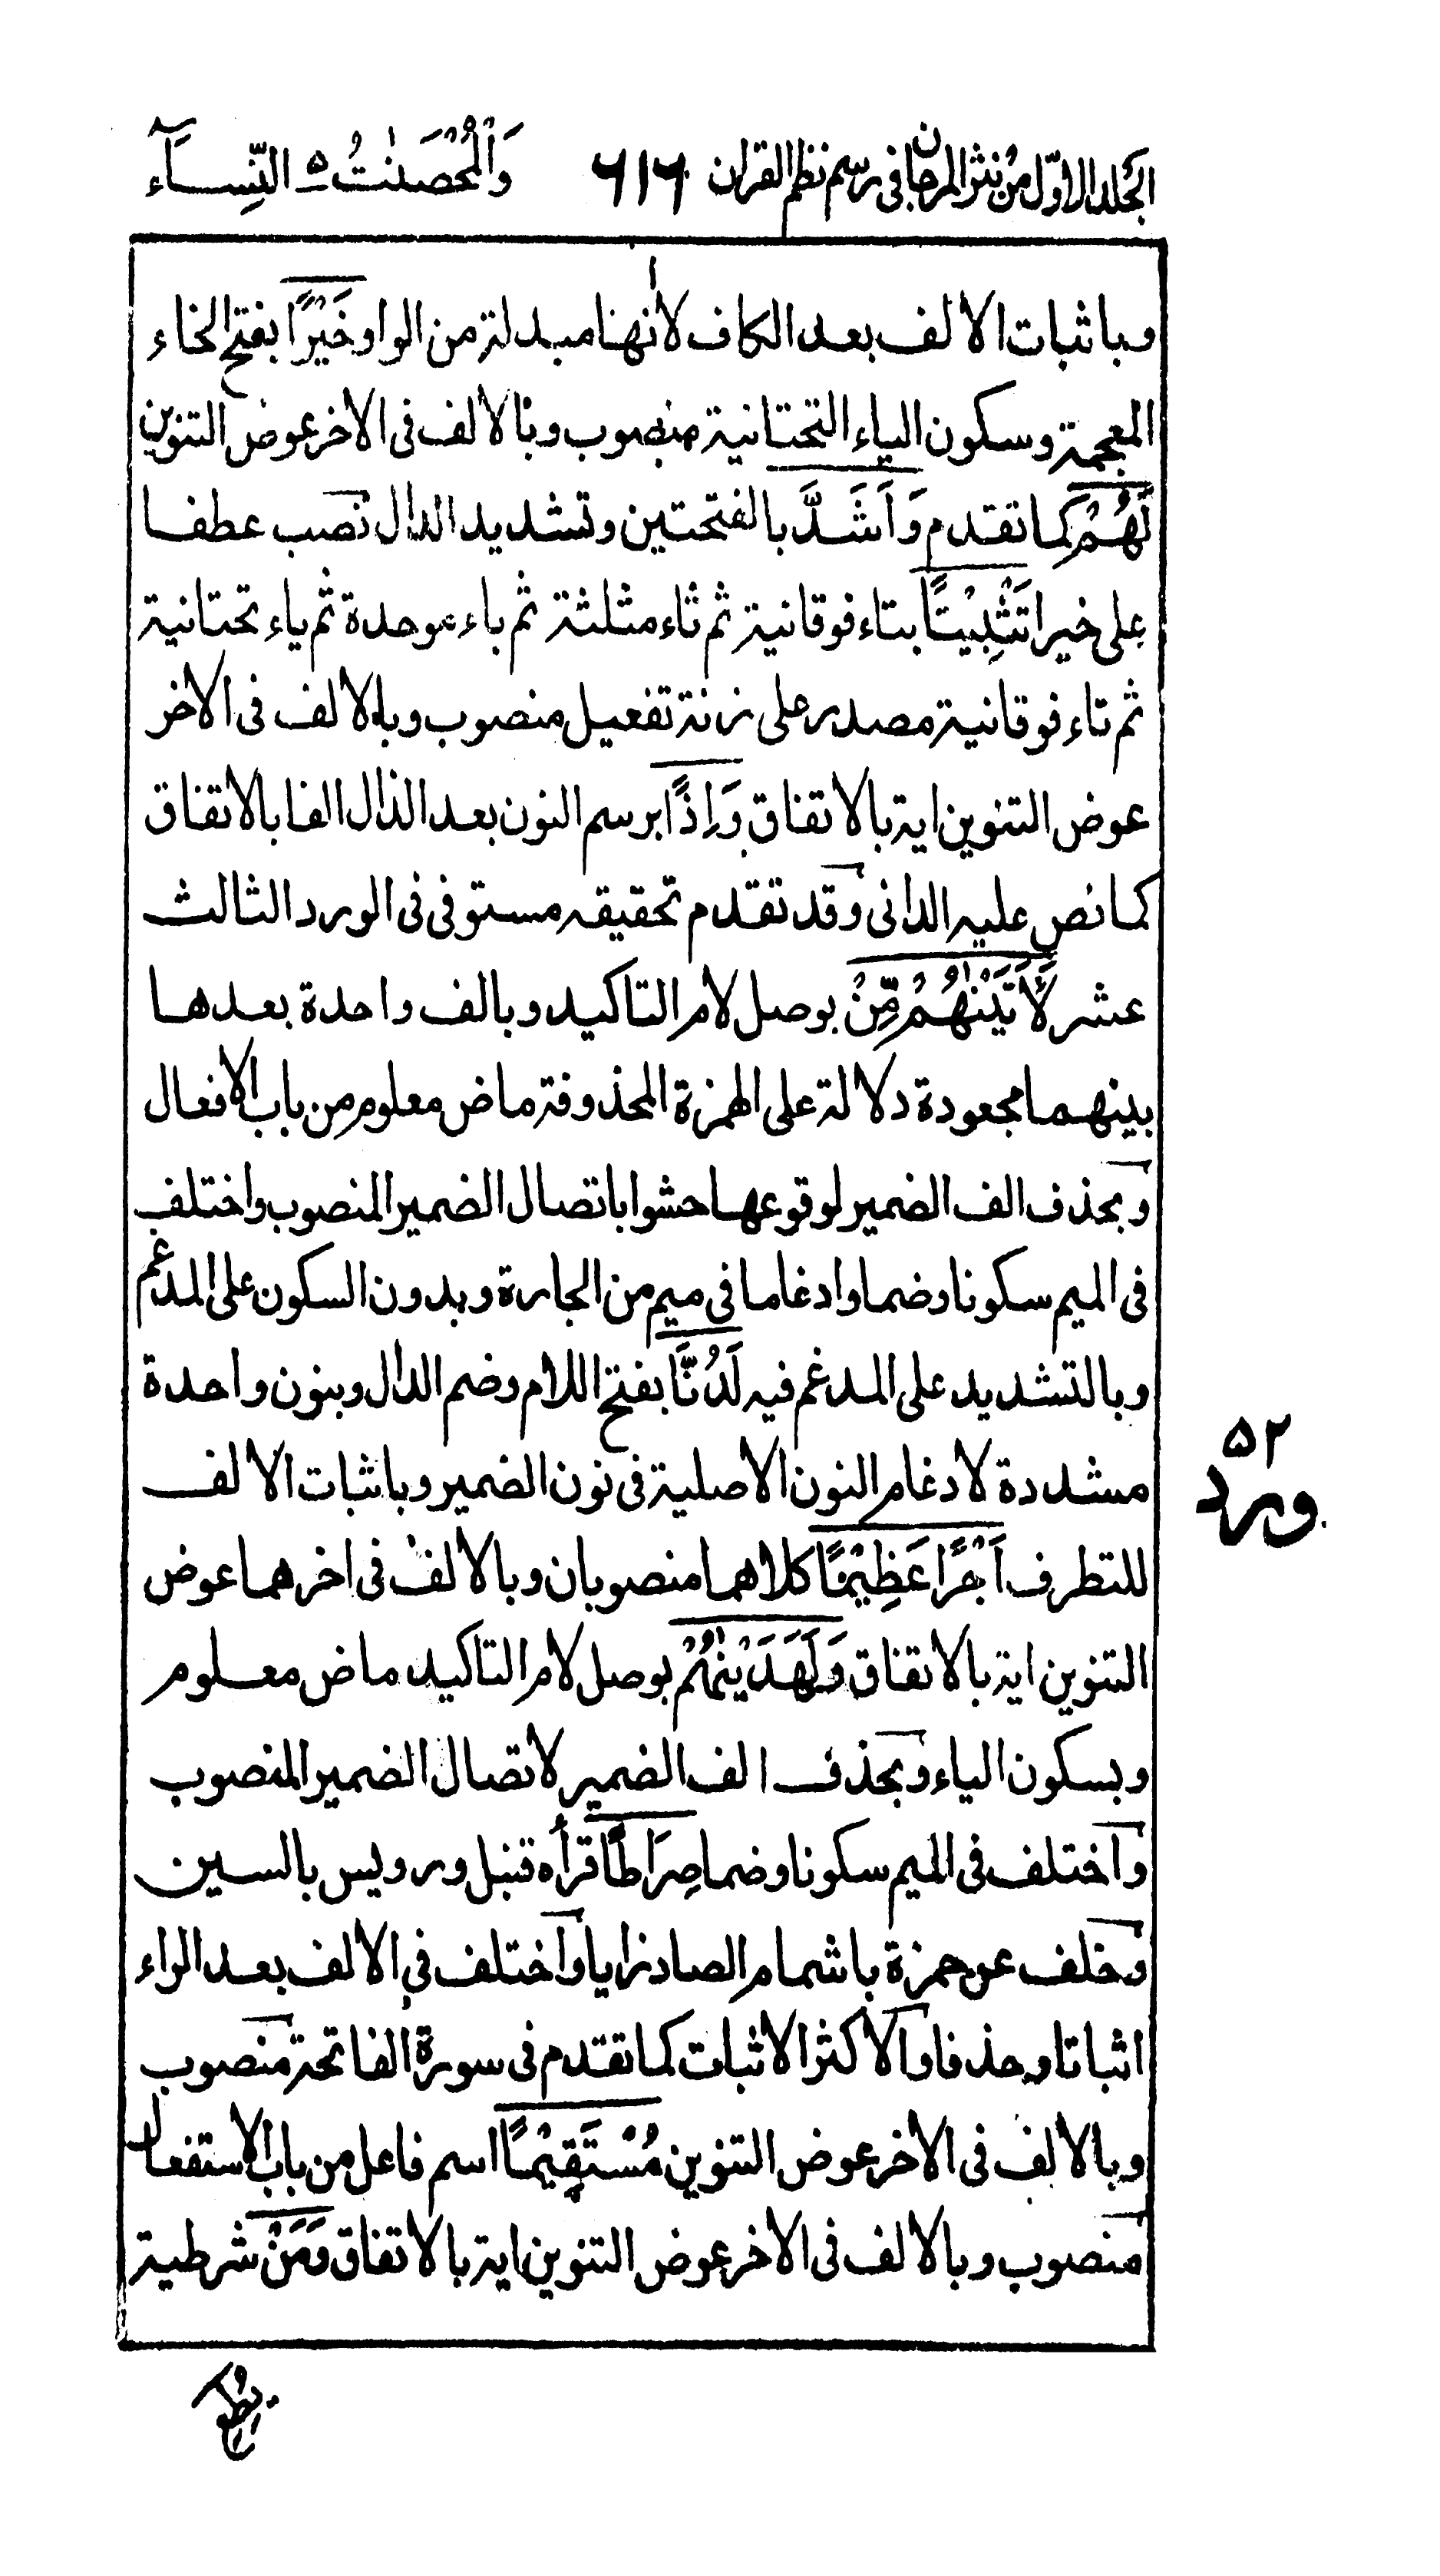 الجلد الاول من نثر المرجان فى رسم نظم القران ٦١٦ وَالْمُحْصَنٰتُ ٥ النِّسَآء
وباثبات الالف بعد الكاف لانها مبدلة من الواو خَيْرًا بفتح الخاء
المعجمة وسكون الياء التحتانية منصوب وبالالف فى الاخر عوض التنوين
لَهُمْ كما تقدم وَاَشَدَّ بالفتحتين وتشديد الدال نصب عطفا
على خيرا تَثْبِيْتًا بتاء فوقانية ثم ثاء مثلثة ثم باء موحدة ثم ياء تحتانية
ثم تاء فوقانية مصدر على زنة تفعيل منصوب وبالالف فى الاخر
عوض التنوين اية بالاتفاق وَاِذًا برسم النون بعد الذال الفا بالاتفاق
كما نص عليه الدانى وقد تقدم تحقيقه مستوفى فى الورد الثالث
عشر لَاٰتَيْنٰهُمْ مِّنْ بوصل لام التاكيد وبالف واحدة بعدها
بينهما مجعودة دلالة على الهمزة المحذوفة ماض معلوم من باب الافعال
وبحذف الف الضمير لوقوعها حشوا باتصال الضمير المنصوب واختلف
فى الميم سكونا وضما وادغاما فى ميم من الجارة وبدون السكون على المدغم
وبالتشديد على المدغم فيه لَدُنَّا بفتح اللام وضم الدال وبنون واحدة
مشددة لادغام النون الاصلية فى نون الضمير وباثبات الالف
للتطرف اَجْرًا عَظِيْمًا كلاهما منصوبان وبالالف فى اخرهما عوض
التنوين اية بالاتفاق وَلَهَدَيْنٰهُمْ بوصل لام التاكيد ماض معلوم
وبسكون الياء وبحذف الف الضمير لاتصال الضمير المنصوب
واختلف فى الميم سكونا وضما صِرَاطًا قرأه قنبل ورويس بالسين
وخلف عن حمزة باشمام الصاد زايا واختلف فى الالف بعد الراء
اثباتا وحذفا والاكثر الاثبات كما تقدم فى سورة الفاتحة منصوب
وبالالف فى الاخر عوض التنوين مُسْتَقِيْمًا اسم فاعل من باب الاستفعال
منصوب وبالالف فى الاخر عوض التنوين اية بالاتفاق وَمَنْ شرطية
٥٢
ورد